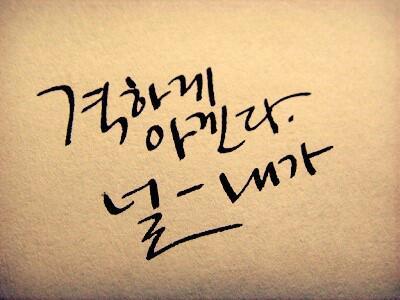 격하게
아낀다.
널- 내가